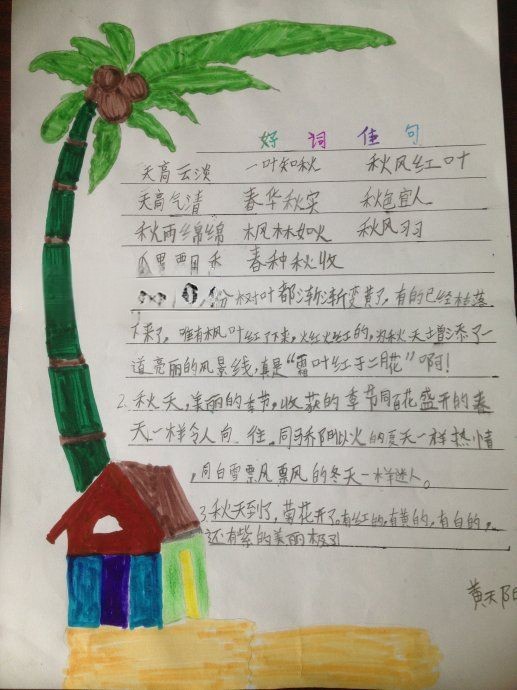 好 词 佳 句
天高云淡 一叶知秋 秋风红叶
天高气清 春华秋实 秋色宜人
秋雨绵绵 枫林如火 秋风习习
春种秋收
份树叶都渐渐变黄了,有的已经枯落
下来了,唯有枫叶红下来,火红火红的,为秋天增添了一
道亮丽的风景线,真是“霜叶红于二月花”啊!
2.秋天,美丽的季节,收获的季节同百花盛开的春
天一样令人向往。同骄阳似火的夏天一样热情
,同白雪飘飘的冬天一样迷人。
3.秋天到了,菊花开了。有红的,有黄的,有白的,
还有紫的美丽极了
黄天阳